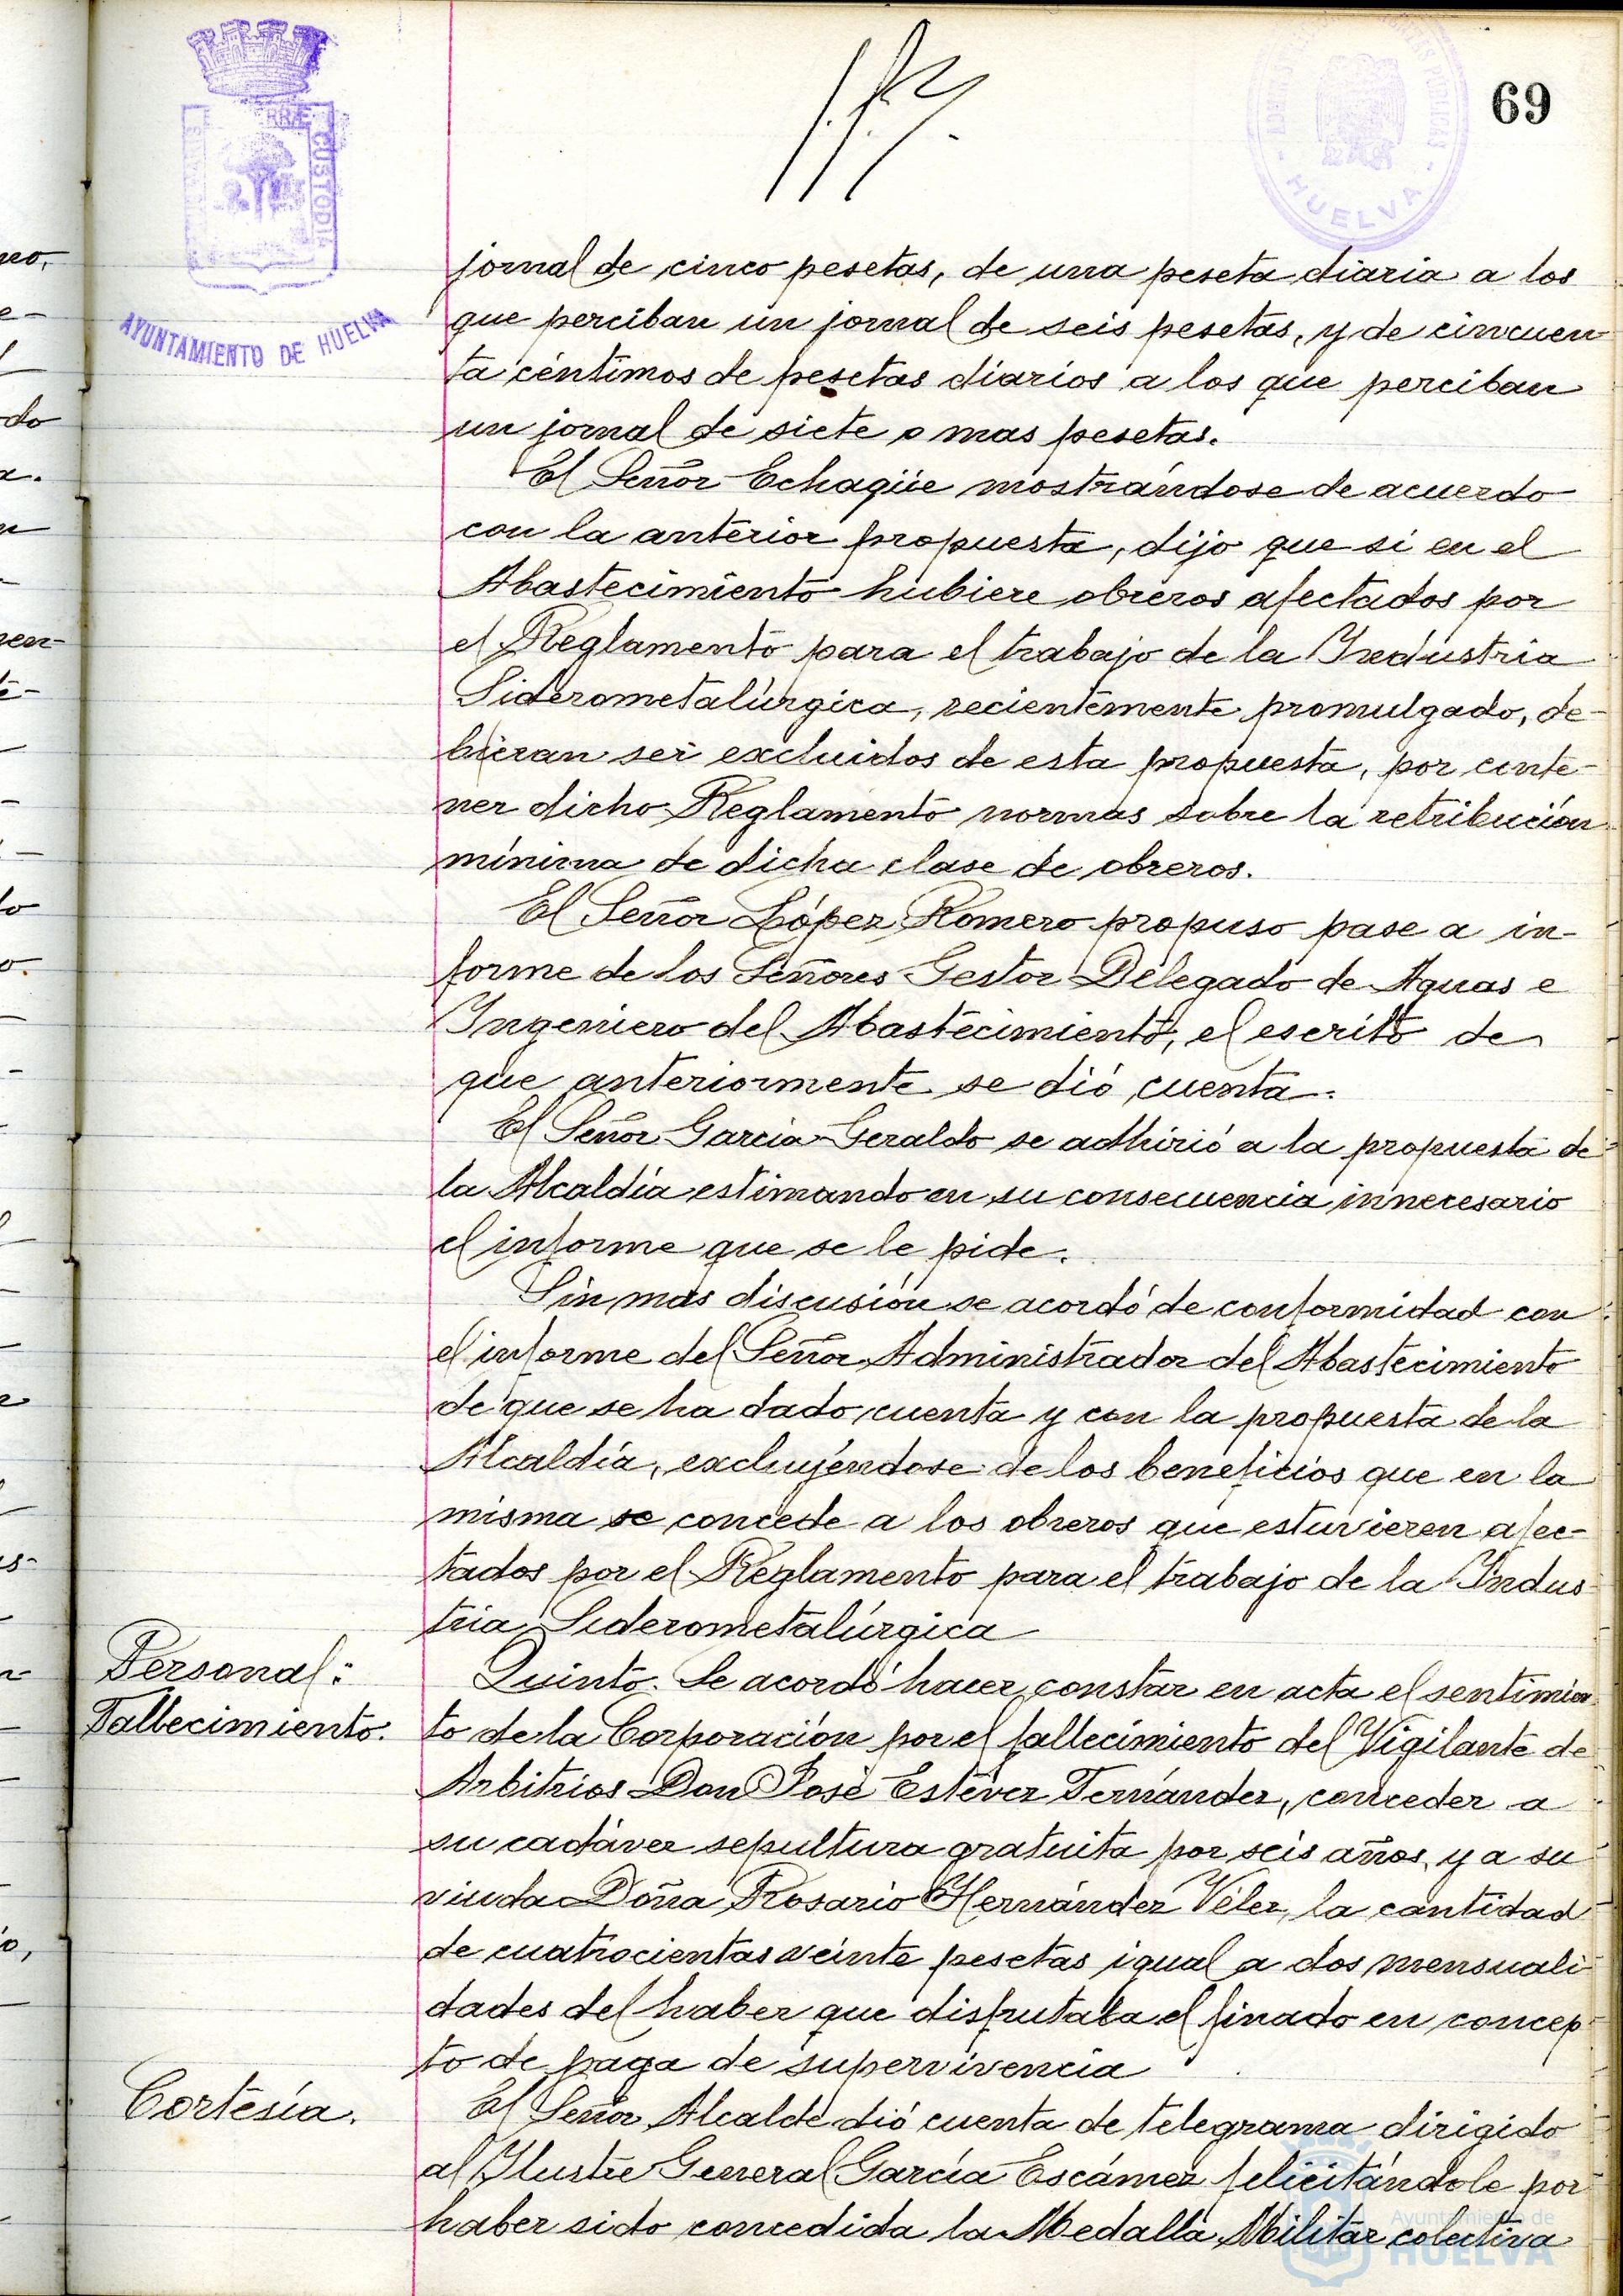 69
RRÆ CUSTODIA
AYUNTAMIENTO DE HUELVA
- HUELVA -
jornal de cinco pesetas, de una peseta diaria a los
que perciban un jornal de seis pesetas, y de cincuen
ta céntimos de pesetas diarios a los que perciban
un jornal de siete o mas pesetas.
El Señor Echagüe mostrándose de acuerdo
con la anterior propuesta, dijo que si en el
Abastecimiento hubiere obreros afectados por
el Reglamento para el trabajo de la Industria
Siderometalúrgica, recientemente promulgado, de-
bieran ser excluidos de esta propuesta, por conte-
ner dicho Reglamento normas sobre la retribución
mínima de dicha clase de obreros.
El Señor López Romero propuso pase a in-
forme de los Señores Gestor Delegado de Aguas e
Ingeniero del Abastecimiento, el escrito de
que anteriormente se dió cuenta.
El Señor Garcia Geraldo se adhirió a la propuesta de
la Alcaldía estimando en su consecuencia innecesario
el informe que se le pide.
Sin mas discusión se acordó de conformidad con
el informe del Señor Administrador del Abastecimiento
de que se ha dado cuenta y con la propuesta de la
Alcaldía, excluyéndose de los beneficios que en la
misma se concede a los obreros que estuvieren afec-
tados por el Reglamento para el trabajo de la Indus
tria Siderometalúrgica
Personal:
Fallecimiento.
Quinto. Se acordó hacer constar en acta el sentimien
to de la Corporación por el fallecimiento del Vigilante de
Arbitrios Don José Estévez Fernández, conceder a
su cadáver sepultura gratuita por seis años, y a su
viuda Doña Rosario Hernández Vélez, la cantidad
de cuatrocientas veinte pesetas igual a dos mensuali
dades del haber que disfrutaba el finado en concep
to de paga de supervivencia
Cortesía.
El Señor Alcalde dió cuenta de telegrama dirigido
al Ilustre General García Escámez felicitándole por
haber sido concedida la Medalla Militar colectiva
Ayuntamiento de
HUELVA